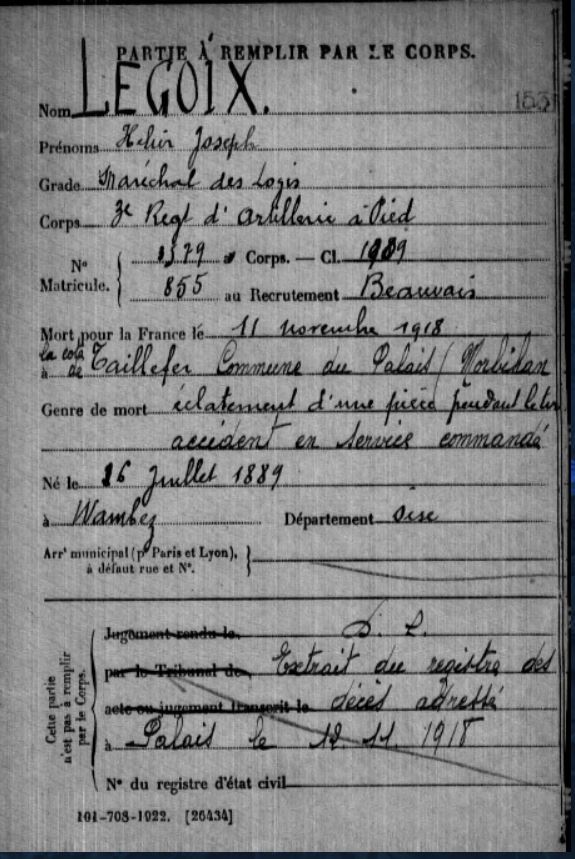 PARTIE À REMPLIR PAR LE CORPS.
Nom LEGOIX.
Prénoms Joseph
Grade Maréchal des Logis
Corps 3e Regt d'Artillerie à Pied
N° Matricule. { 1579 Corps. — Cl. 1909
855 au Recrutement Beauvais
Mort pour la France le 11 novembre 1918
à la cote de Taillefer Commune du Palais (Morbihan
Genre de mort éclatement d'une pièce pendant le tir
accident en service commandé
Né le 16 Juillet 1889
à Wambez Département Oise
Arrt municipal (pr Paris et Lyon), à défaut rue et N°. }
Cette partie n'est pas à remplir par le Corps. {
Jugement rendu le D. L.
par le Tribunal de Extrait du registre des
acte ou jugement transcrit le décès adressé
à Palais le 12.11.1918
N° du registre d'état civil
101-708-1922. [26434]